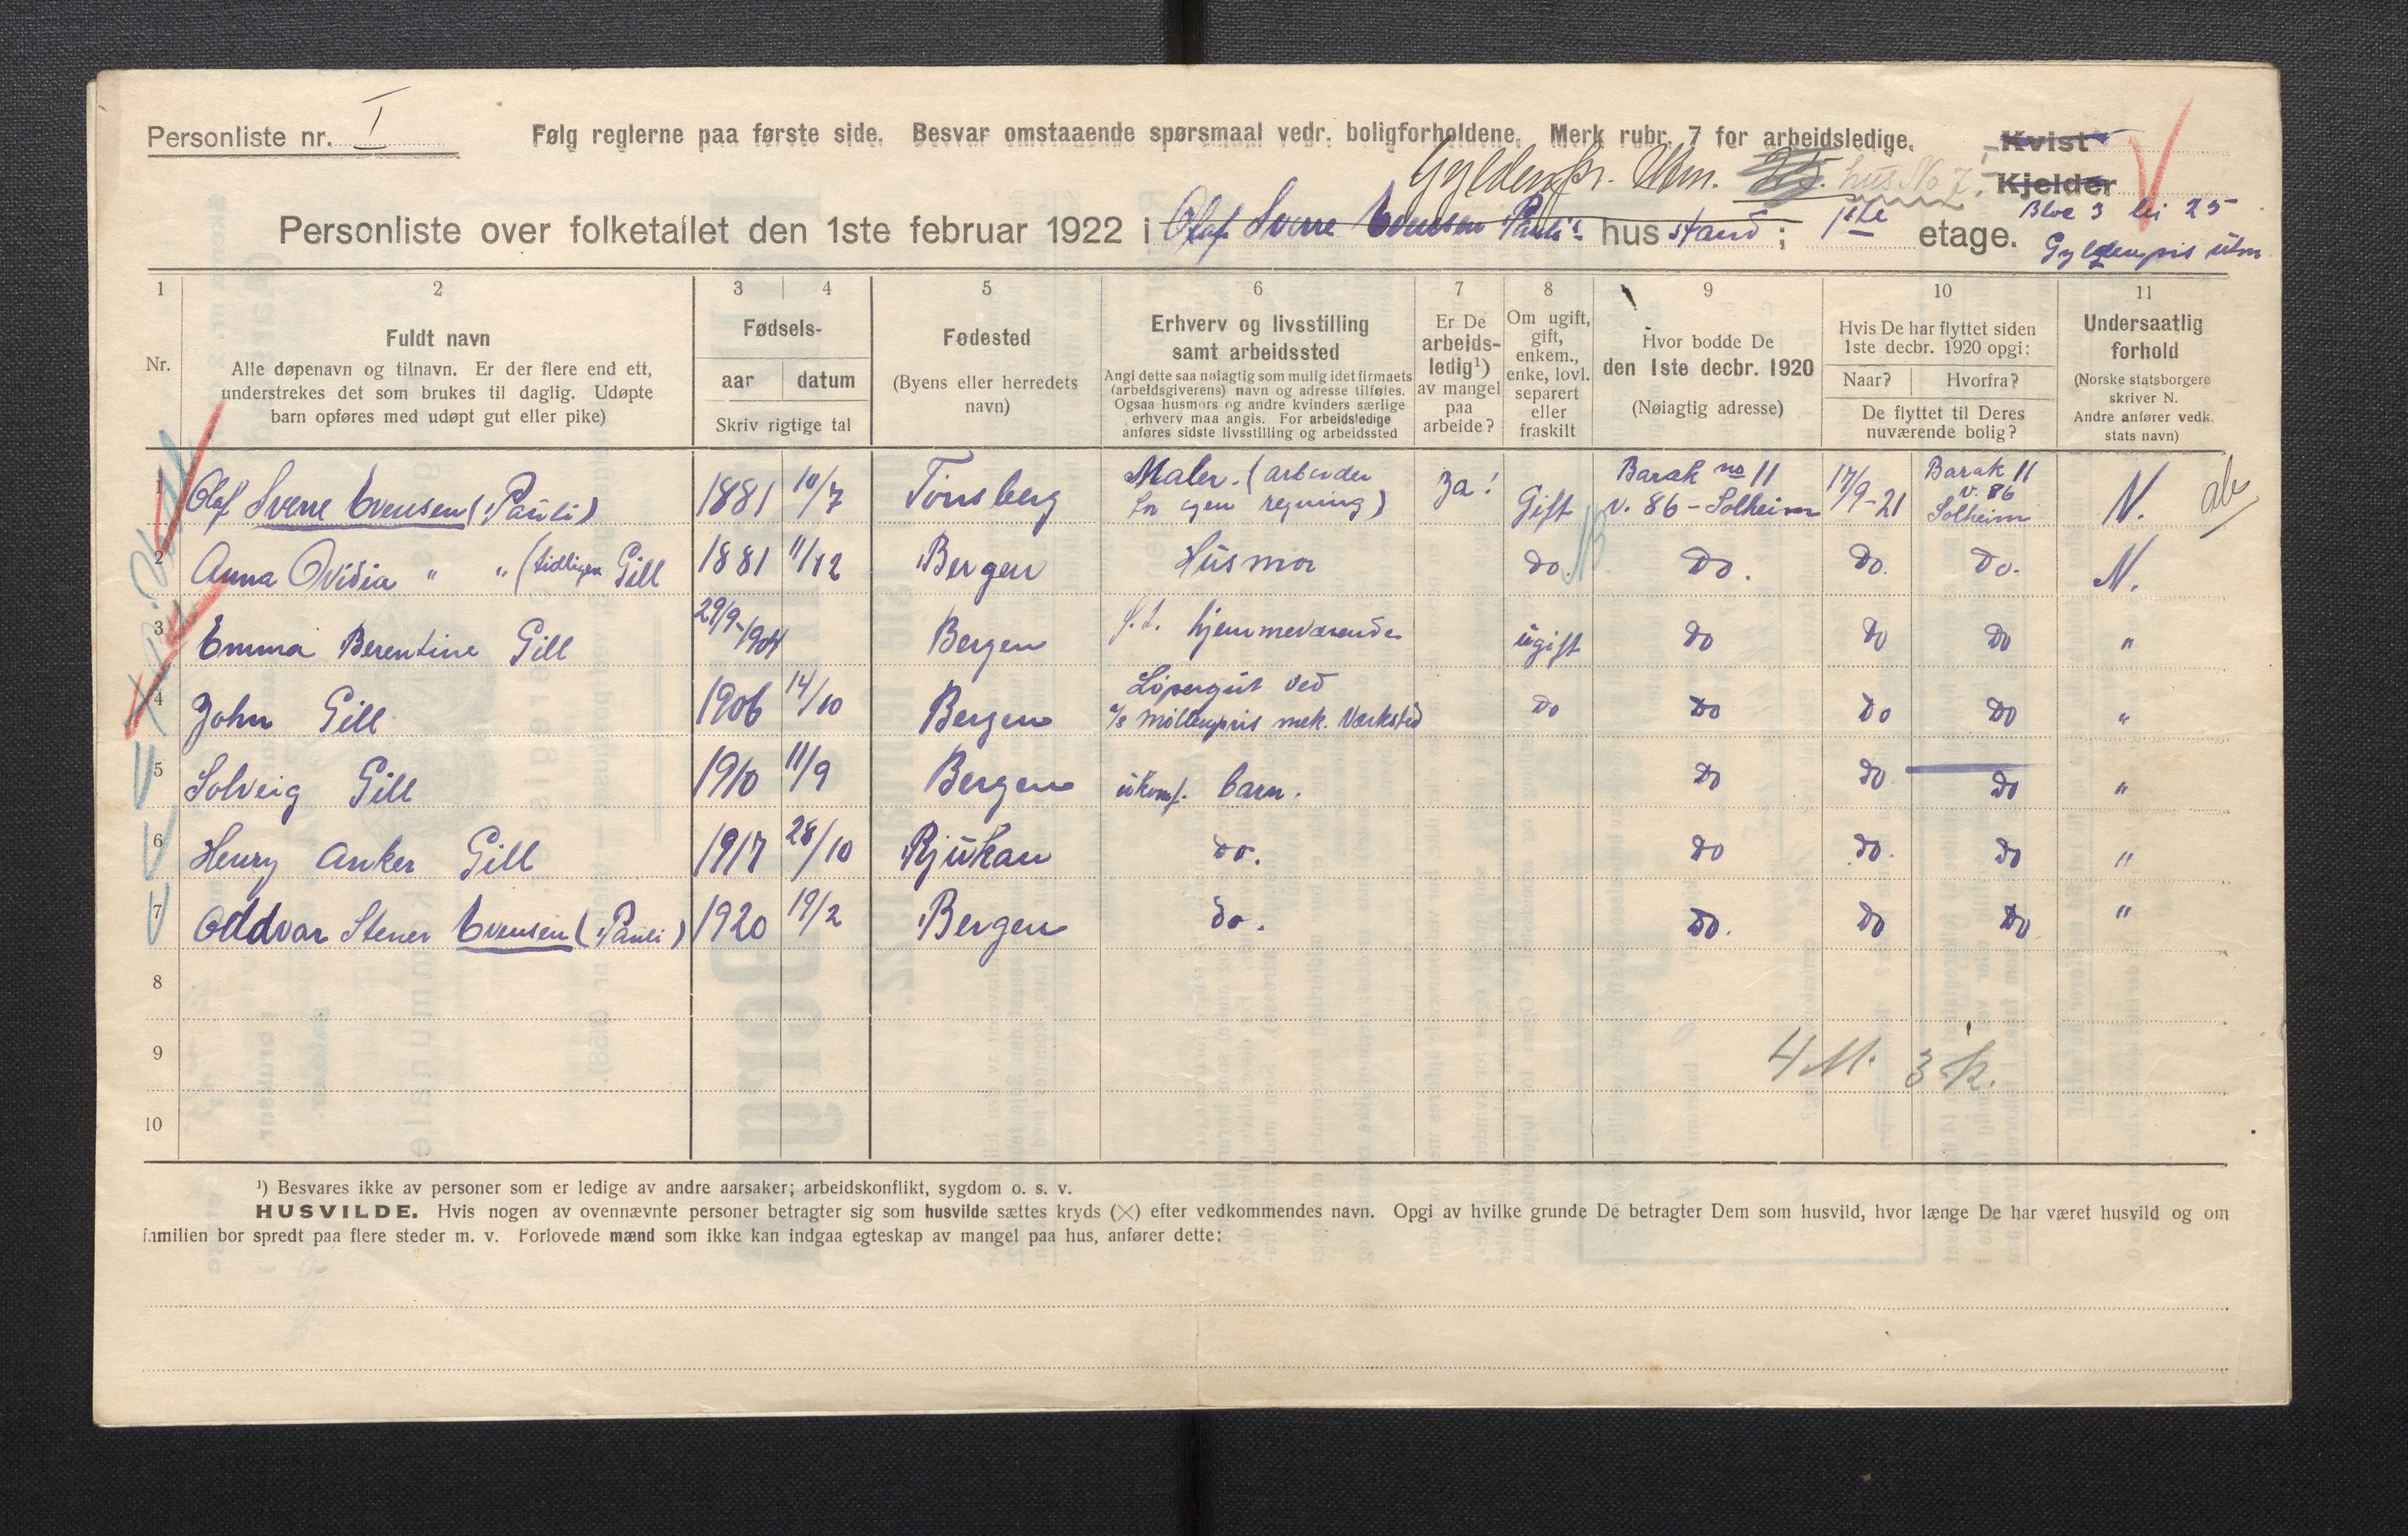 Personliste nr. I
Følg reglerne paa første side. Besvar omstaaende spørsmaal vedr. boligforholdene. Merk rubr. 7 for arbeidsledige.
Kvist
Kjelder
Gyldenpr. Utm. 25. hus No 7.
Personliste over folketallet den 1ste februar 1922 i Olaf Sverre Evensen Pauli's husstand; 1ste etage.
Bloc 3 lei 25
Gyldenpris utm
1 2 3 4 5 6 7 8 9 10 11
Nr.
Fuldt navn
Alle døpenavn og tilnavn. Er der flere end ett,
understrekes det som brukes til daglig. Udøpte
barn opføres med udøpt gut eller pike)
Fødsels-
aar datum
Skriv rigtige tal
Fødested
(Byens eller herredets
navn)
Erhverv og livsstilling
samt arbeidssted
Angi dette saa nøiagtig som mulig idet firmaets
(arbeidsgiverens) navn og adresse tilføies.
Ogsaa husmors og andre kvinders særlige
erhverv maa angis. For arbeidsledige
anføres sidste livsstilling og arbeidssted
Er De
arbeids-
ledig¹)
av mangel
paa
arbeide?
Om ugift,
gift,
enkem.,
enke, lovl.
separert
eller
fraskilt
Hvor bodde De
den 1ste decbr. 1920
(Nøiagtig adresse)
Hvis De har flyttet siden
1ste decbr. 1920 opgi:
Naar? Hvorfra?
De flyttet til Deres
nuværende bolig?
Undersaatlig
forhold
(Norske statsborgere
skriver N.
Andre anfører vedk.
stats navn)
1 Olaf Sverre Evensen (Pauli) 1881 10/7 Tønsberg Maler. (arbeider for egen regning) Ja! Gift Barak no 11 v. 86 - Solheim 17/9-21 Barak 11 v. 86 Solheim N.
2 Anna Ovidia " " (tidligere Gill 1881 11/12 Bergen Husmor do. Do. Do. Do. N.
3 Emma Berentine Gill 29/9-1904 Bergen f.t. hjemmeværende ugift Do Do Do "
4 John Gill 1906 14/10 Bergen Løpergut ved A/S Møllenpris mek. Værksted Do Do Do Do "
5 Solveig Gill 1910 11/9 Bergen ukonf. barn. Do Do Do "
6 Henry Anker Gill 1917 28/10 Rjukan do. Do Do. Do "
7 Oddvar Stener Evensen (Pauli) 1920 19/2 Bergen do. Do. Do Do "
8
9
4 M. 3 K.
10
¹) Besvares ikke av personer som er ledige av andre aarsaker; arbeidskonflikt, sygdom o. s. v.
HUSVILDE. Hvis nogen av ovennævnte personer betragter sig som husvilde sættes kryds (×) efter vedkommendes navn. Opgi av hvilke grunde De betragter Dem som husvild, hvor længe De har været husvild og om
familien bor spredt paa flere steder m. v. Forlovede mænd som ikke kan indgaa egteskap av mangel paa hus, anfører dette: